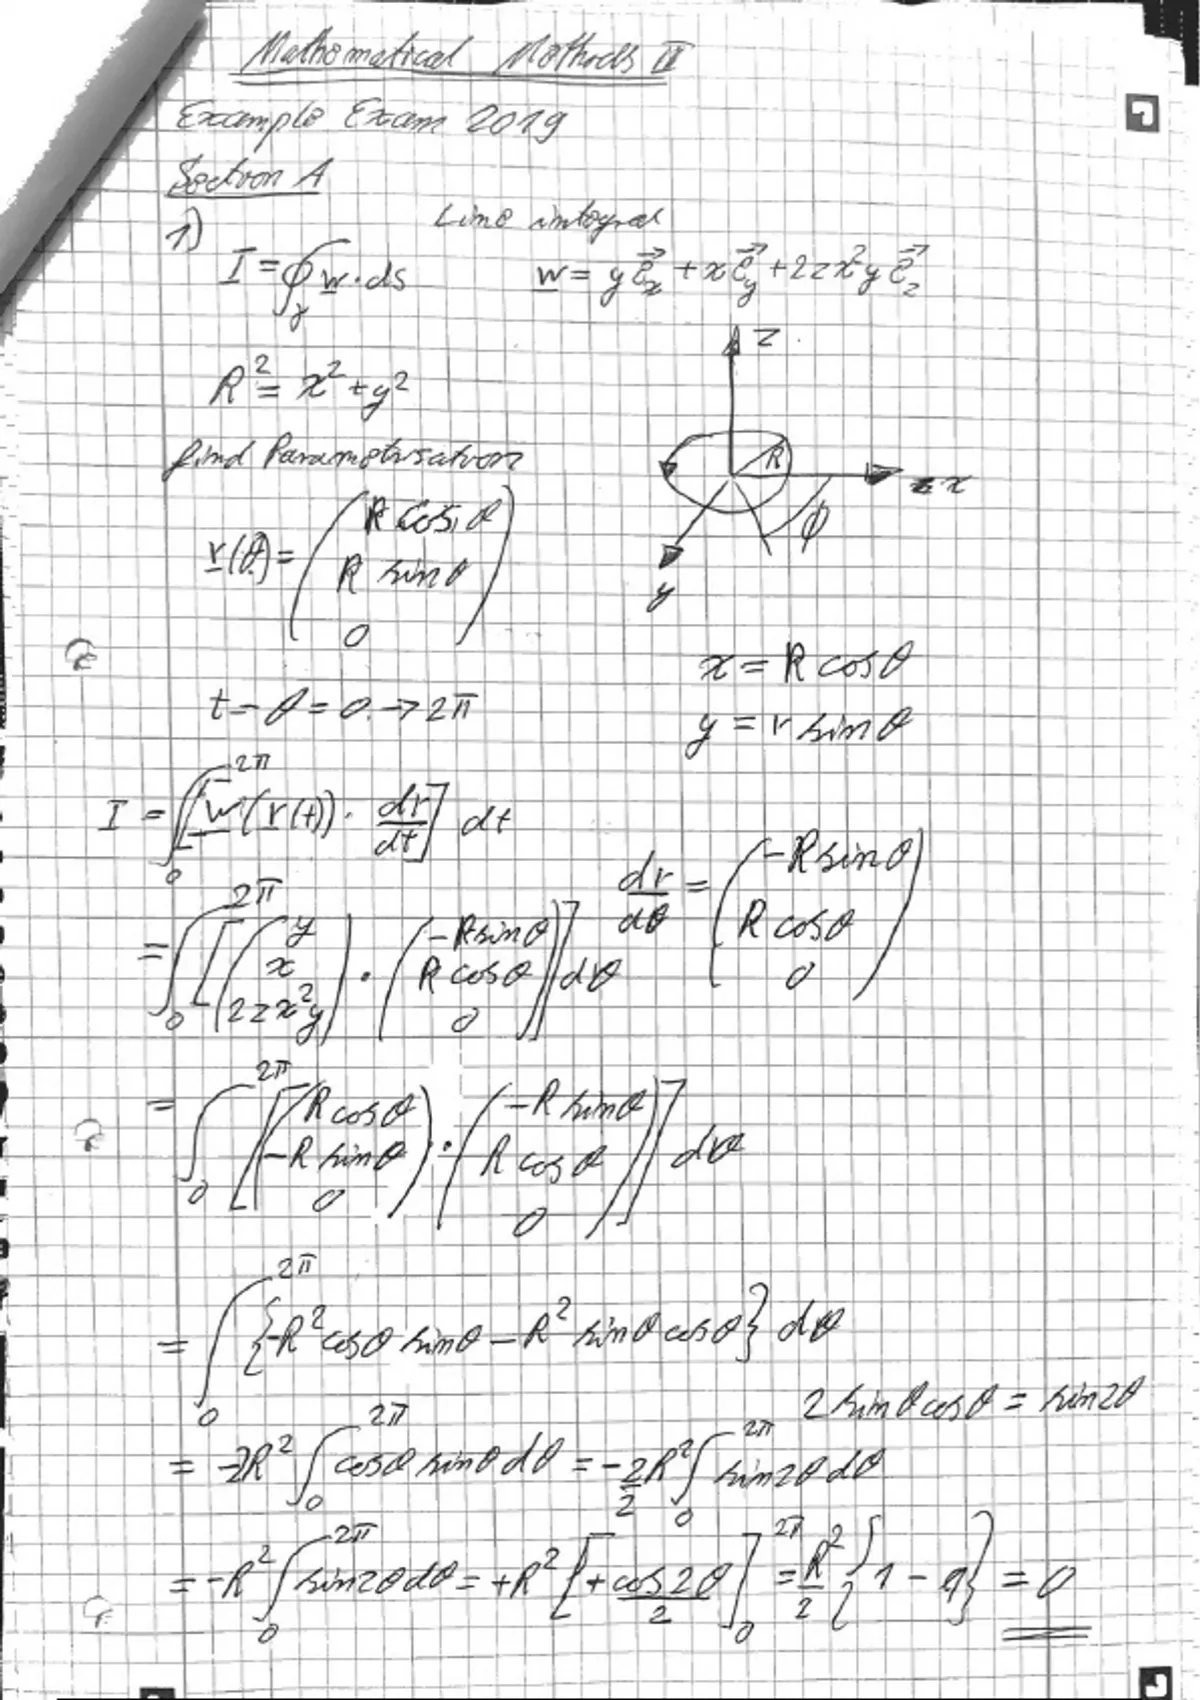 Mathematical Methods II
Example Exam 2019
Section A
1) Line integral
I = ∮_γ w · ds    w = y e⃗_x + x e⃗_y + 2zx²y e⃗_z
z
R² = x² + y²
R
x
find Parametrisation
ϕ
y
r(θ) = ( R cos θ
R sin θ
0 )
x = R cos θ
t = θ = 0 → 2π
y = r sin θ
I = ∫₀^{2π} [w(r(t)) · dr/dt] dt
dr/dθ = ( -R sin θ
R cos θ
0 )
= ∫₀^{2π} [( y
x
2zx²y ) · ( -R sin θ
R cos θ
0 )] dθ
= ∫₀^{2π} [( R cos θ
-R sin θ
0 ) · ( -R sin θ
R cos θ
0 )] dθ
= ∫₀^{2π} {-R² cos θ sin θ - R² sin θ cos θ} dθ
2 sin θ cos θ = sin 2θ
= -2R² ∫₀^{2π} cos θ sin θ dθ = -2/2 R² ∫₀^{2π} sin 2θ dθ
= -R² ∫₀^{2π} sin 2θ dθ = +R² [+cos 2θ/2]₀^{2π} = R²/2 {1 - 1} = 0